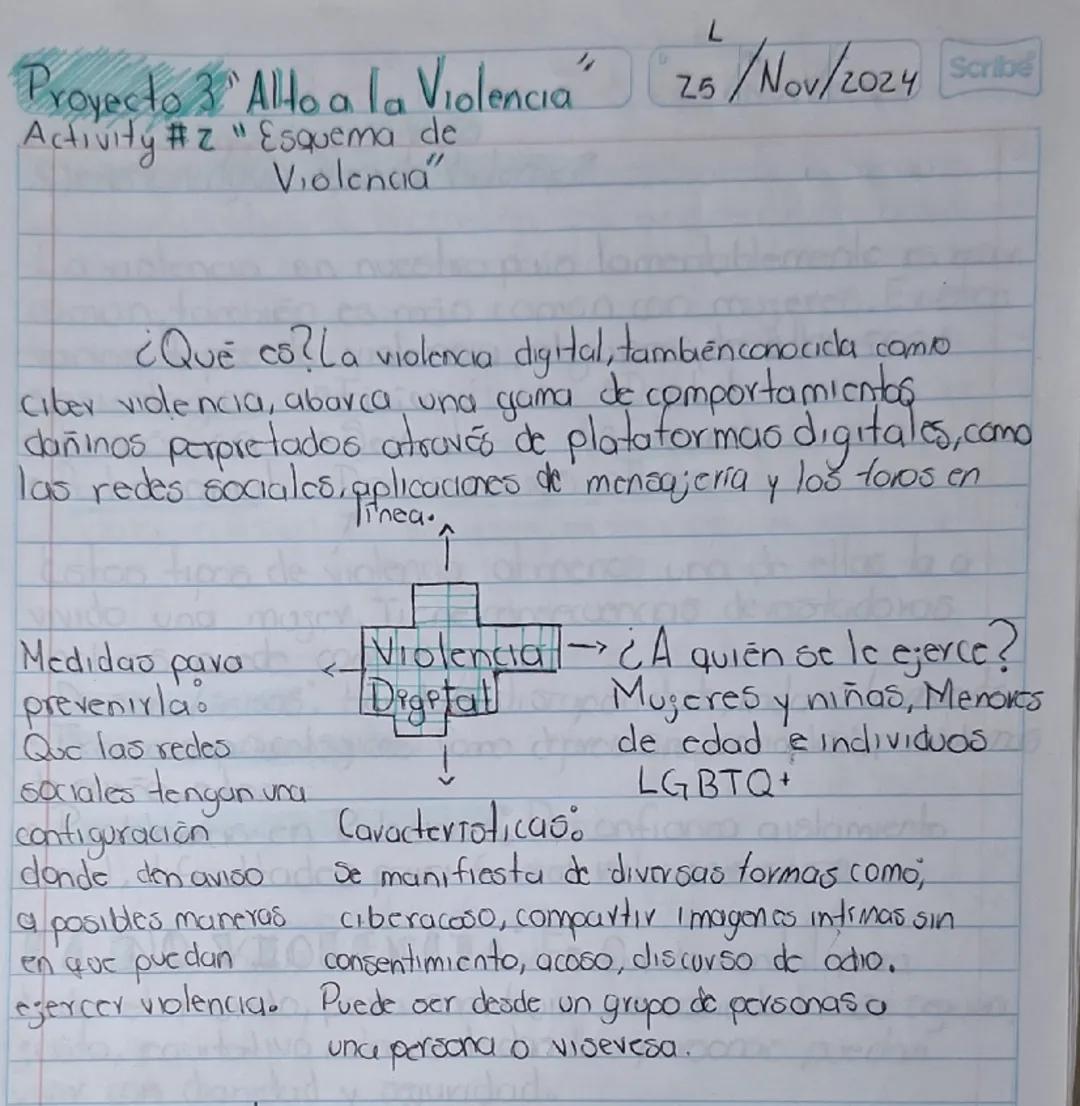 L
Proyecto 3 "Alto a la Violencia"
25/Nov/2024
Scribe
Activity #2 "Esquema de
Violencia"
¿Qué es? La violencia digital, también conocida como
ciber violencia, abarca una gama de comportamientos
dañinos perpretados através de plataformas digitales, como
las redes sociales, aplicaciones de mensajería y los foros en
línea.
Violencia
Digetal
¿A quién se le ejerce?
Mujeres y niñas, Menores
de edad e individuos
LGBTQ+
Medidas para
prevenirla:
Que las redes
sociales tengan una
configuración
donde den aviso
a posibles maneras
en que puedan
ejercer violencia.
Características:
Se manifiesta de diversas formas como;
ciberacoso, compartir imagenes intimas sin
consentimiento, acoso, discurso de odio.
Puede ser desde un grupo de personas a
una persona o visevesa.